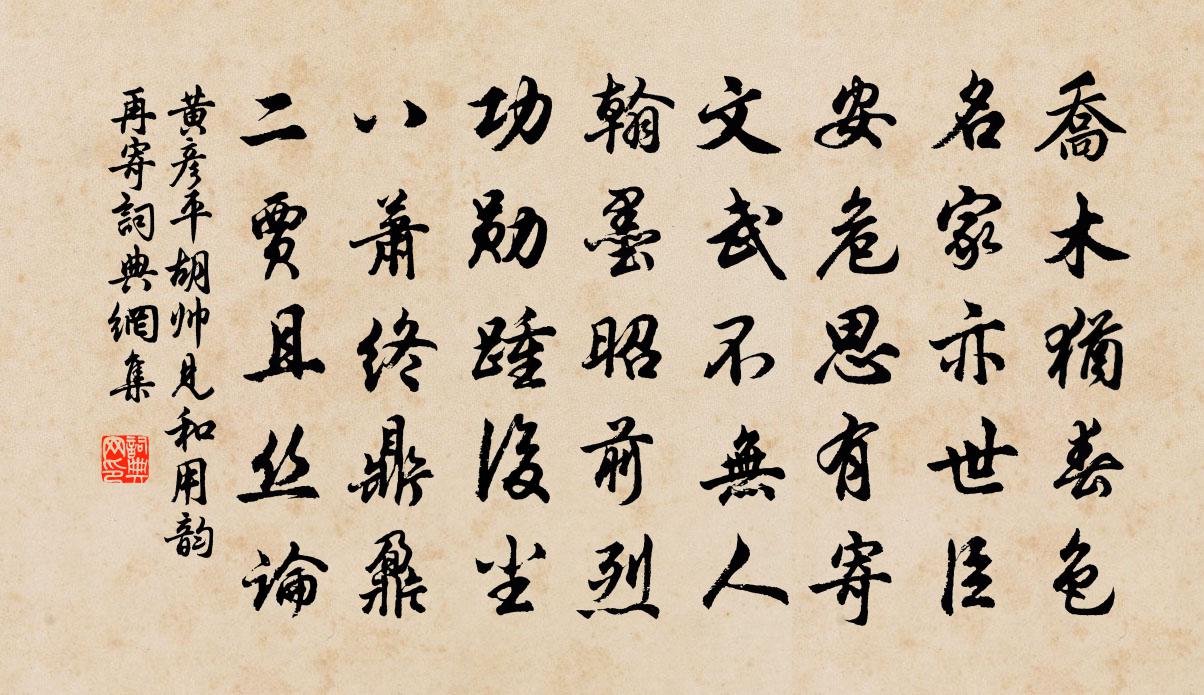 喬木猶春色
名家亦世臣
安危思有寄
文武不無人
翰墨昭前烈
功勋踵後尘
八蕭終鼎鼐
二賈且丝論
黄彦平胡帅見和用韵
再寄詞典網集
詞典网印